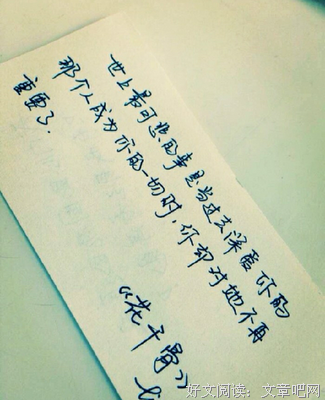 世上最可悲的事是当过去深爱你的
那个人成为你的一切时，你却对她不再
重要了．
《花千骨》
好文阅读：文章吧网